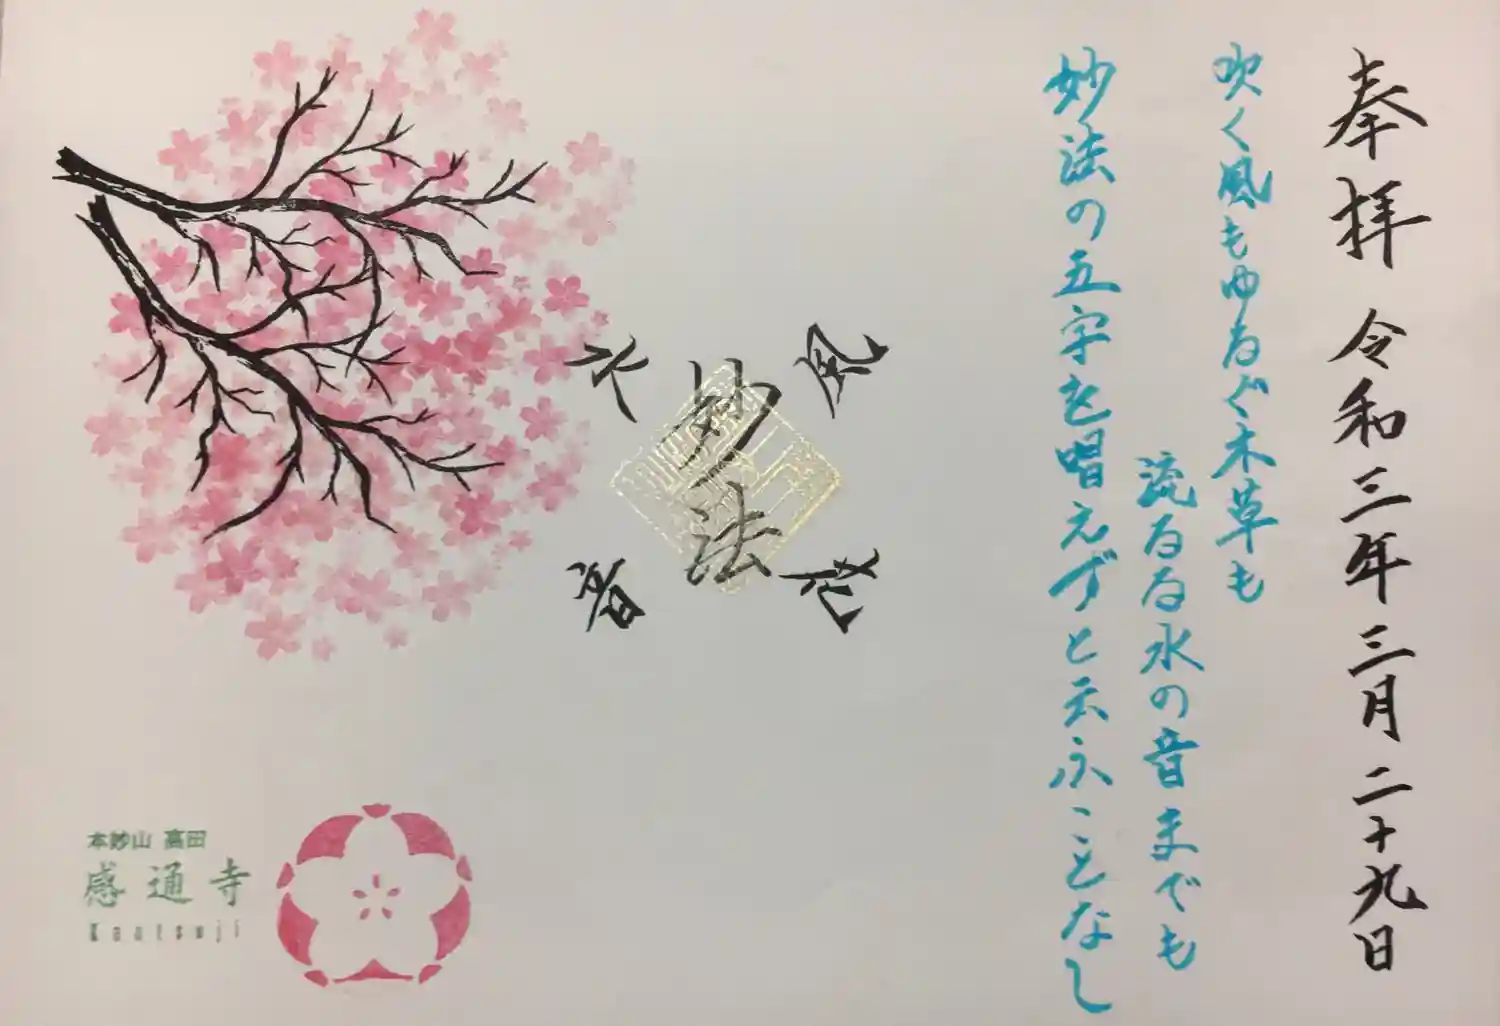 奉拝 令和三年三月二十九日
吹く風もゆるぐ木草も
流るる水の音までも
妙法の五字を唱えずと云ふことなし
風
妙法
水
音
本妙山 高田
感通寺
Kantsuji